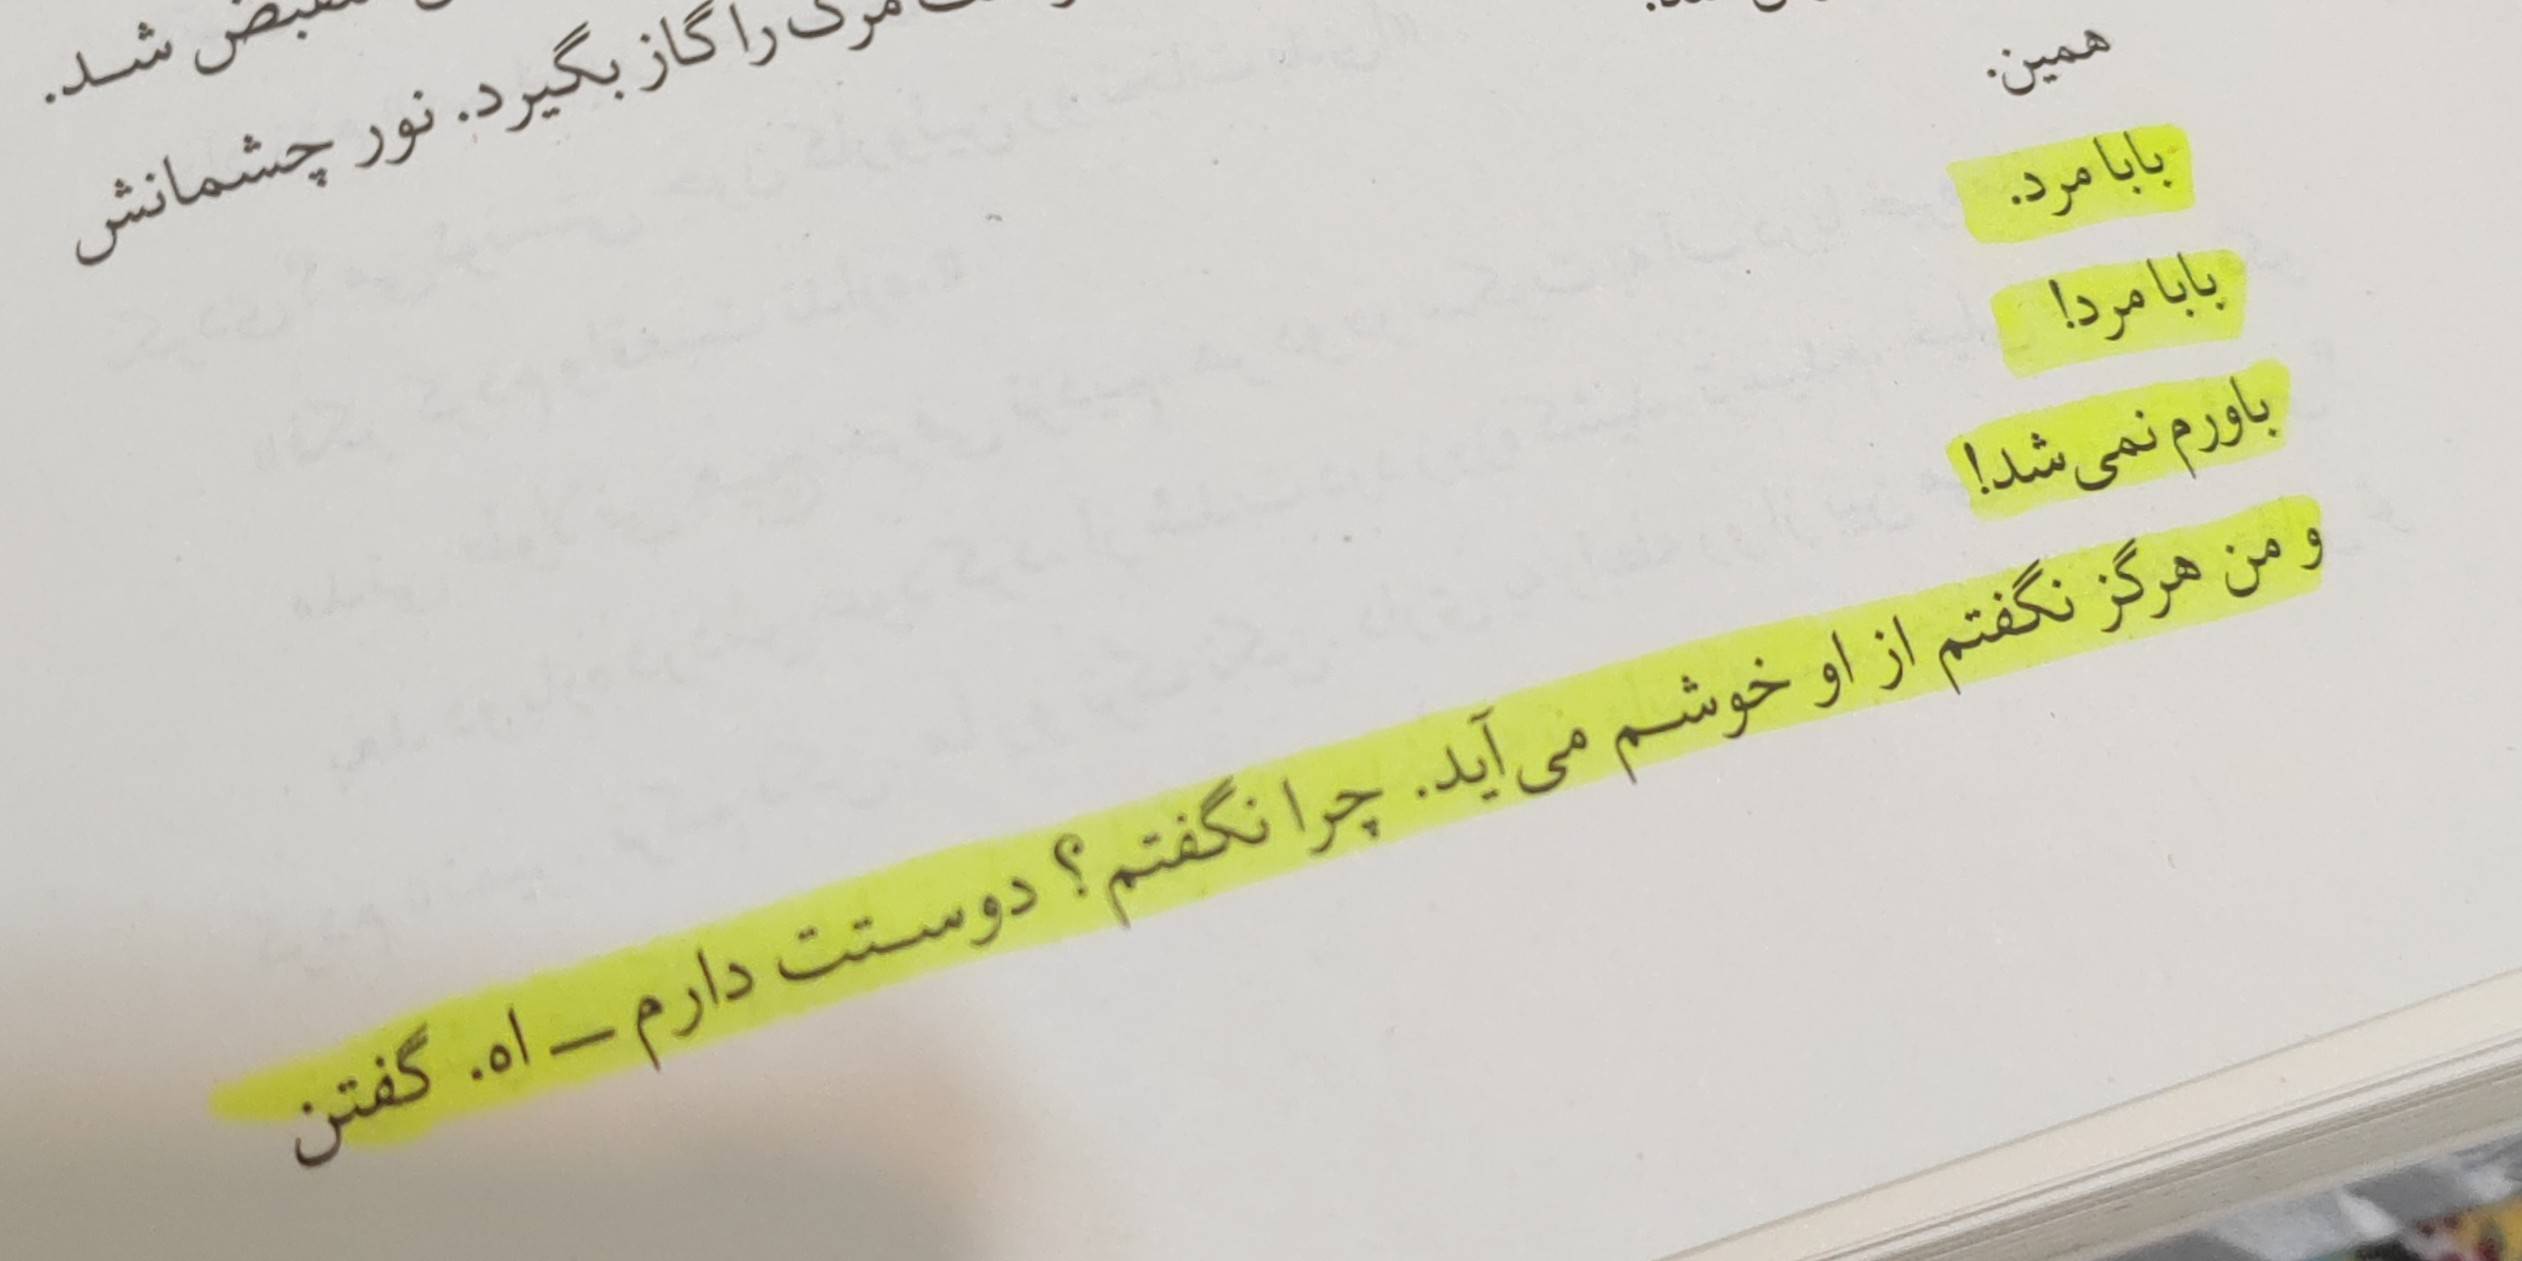 شد.
مرگ را گاز بگیرد. نور چشمانش
همین.
بابا مرد.
بابا مرد!
باورم نمی‌شد!
و من هرگز نگفتم از او خوشم می‌آید. چرا نگفتم؟ دوستت دارم — اه. گفتن